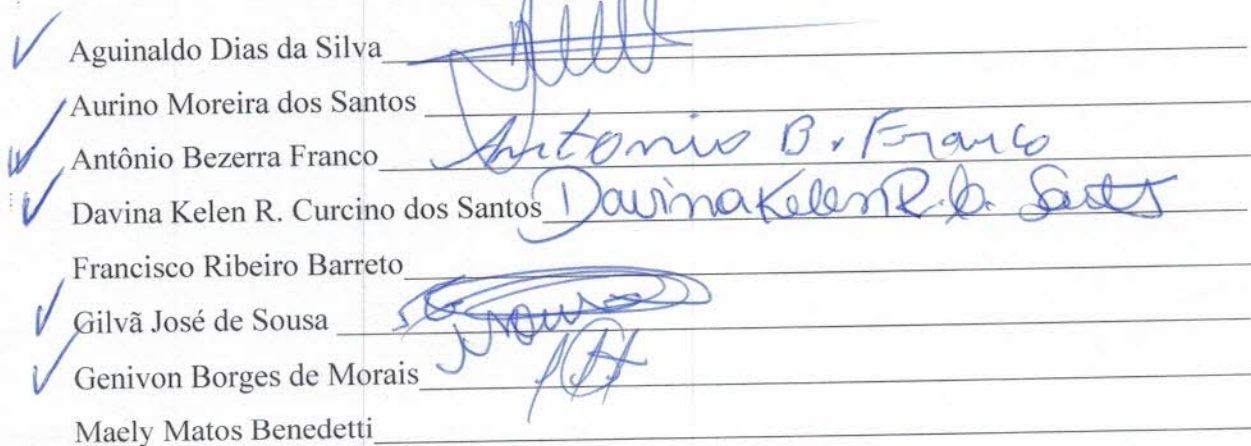 Aguinaldo Dias da Silva
Aurino Moreira dos Santos
Antônio Bezerra Franco Antonio B. Franco
Davina Kelen R. Curcino dos Santos Davina Kelen R. C. Santos
Francisco Ribeiro Barreto
Gilvã José de Sousa
Genivon Borges de Morais
Maely Matos Benedetti